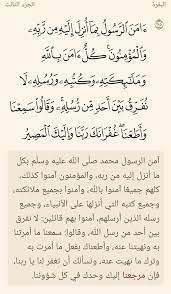 البقرة الجزء الثالث
ءَامَنَ ٱلرَّسُولُ بِمَآ أُنزِلَ إِلَيْهِ مِن رَّبِّهِۦ
وَٱلْمُؤْمِنُونَۚ كُلٌّ ءَامَنَ بِٱللَّهِ
وَمَلَٰٓئِكَتِهِۦ وَكُتُبِهِۦ وَرُسُلِهِۦ لَا
نُفَرِّقُ بَيْنَ أَحَدٍ مِّن رُّسُلِهِۦۚ وَقَالُوا۟ سَمِعْنَا
وَأَطَعْنَاۖ غُفْرَانَكَ رَبَّنَا وَإِلَيْكَ ٱلْمَصِيرُ
آمن الرسول محمد صلى الله عليه وسلم بكل
ما أنزل إليه من ربه، والمؤمنون آمنوا كذلك،
كلهم جميعًا آمنوا بالله، وآمنوا بجميع ملائكته،
وجميع كتبه التي أنزلها على الأنبياء، وجميع
رسله الذين أرسلهم، آمنوا بهم قائلين: لا نفرق
بين أحد من رسل الله، وقالوا: سمعنا ما أمرتنا
به ونهيتنا عنه، وأطعناك بفعل ما أمرت به
وترك ما نهيت عنه، ونسألك أن تغفر لنا يا ربنا،
فإن مرجعنا إليك وحدك في كل شؤوننا.